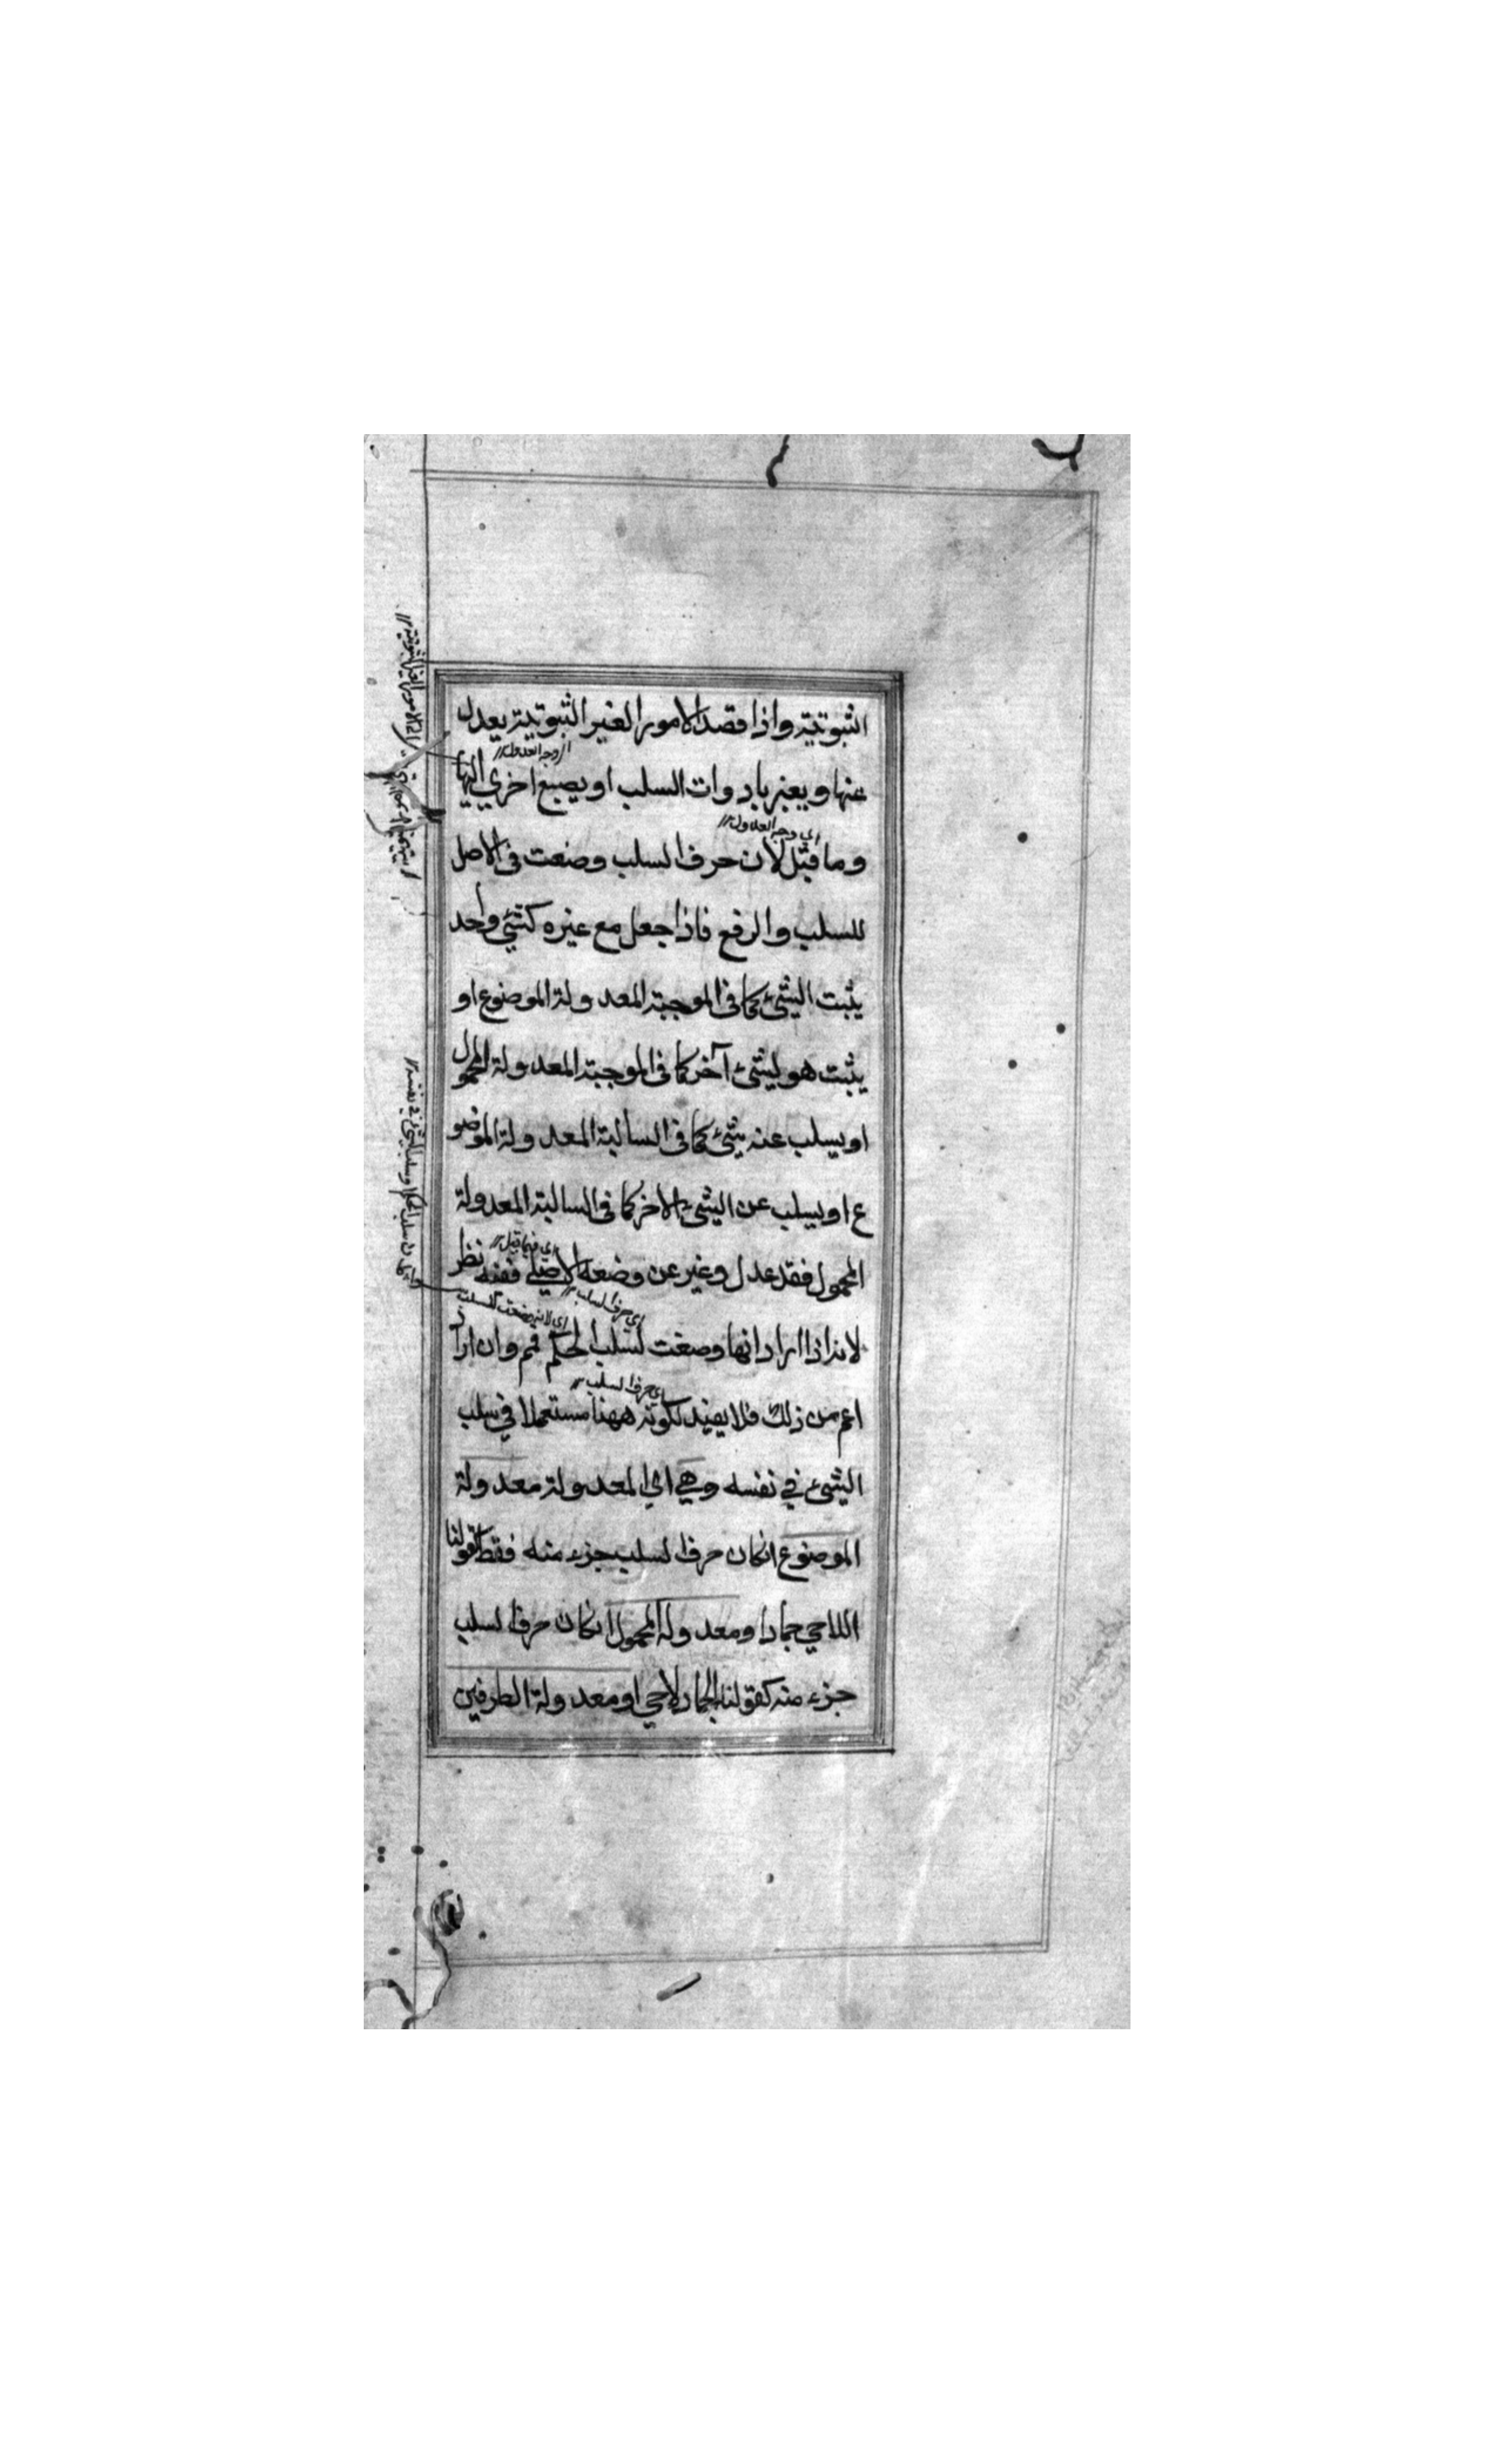 الثبوتية واذا قصد الامور الغير الثبوتية يعدل
عنها ويعبر بادوات السلب او بصيغ اخري اليها
اي وجه العدول
وما قيل لان حرف السلب وضعت في الاصل
للسلب والرفع فاذا جعل مع غيره كشئ واحد
يثبت الشئ كما في الموجبة المعدولة الموضوع او
يثبت هو لشئ آخر كما في الموجبة المعدولة المحمول
او يسلب عنه شئ كما في السالبة المعدولة الموضو
ع او يسلب عن الشئ الاخر كما في السالبة المعدولة
اي فيما قيل
المحمول فقد عدل وغير عن وضعه الاصلي ففيه نظر
اي حرف السلب
لانه اذا اراد انها وضعت لسلب الحكم فمم وان اراد
اي حرف السلب
اعم من ذلك فلا يفيد لكونه ههنا مستعملا في سلب
الشئ في نفسه وهي اي المعدولة معدولة
الموضوع انكان حرف السلب جزء منه فقط كقولنا
اللاحي جماد او معدولة المحمول انكان حرف السلب
جزء منه كقولنا الجماد لاحي او معدولة الطرفين